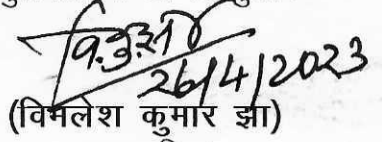 वि.कु.झा
26/4/2023
(विमलेश कुमार झा)